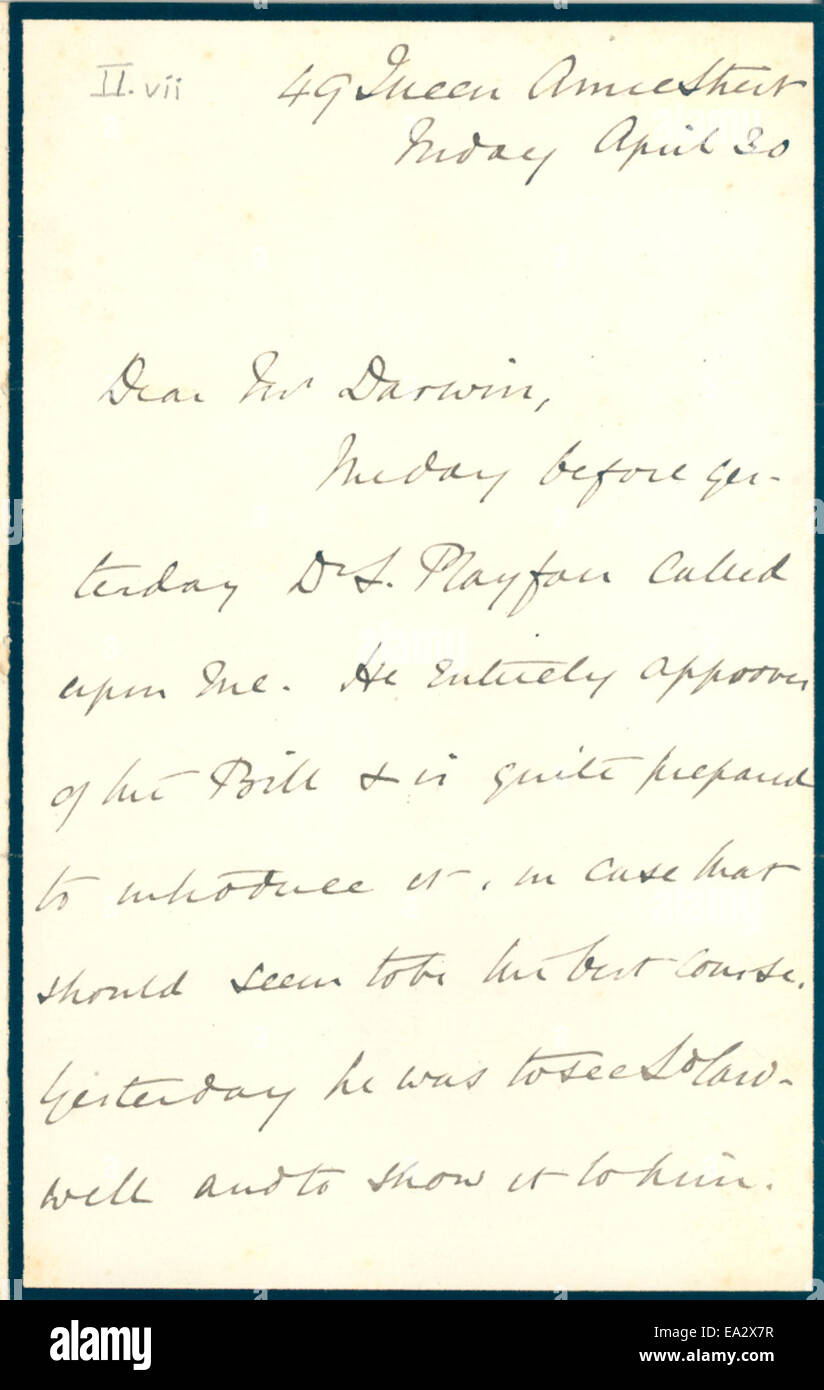 II.vii
49 Queen Anne Street
Friday April 30
Dear Mr Darwin,
The day before yes-
terday Dr L. Playfair called
upon me. He entirely approves
of the Bill & is quite prepared
to introduce it, in case that
should seem to be the best course.
Yesterday he was to see Ld Card-
well and to show it to him.
alamy
Image ID: EA2X7R
www.alamy.com